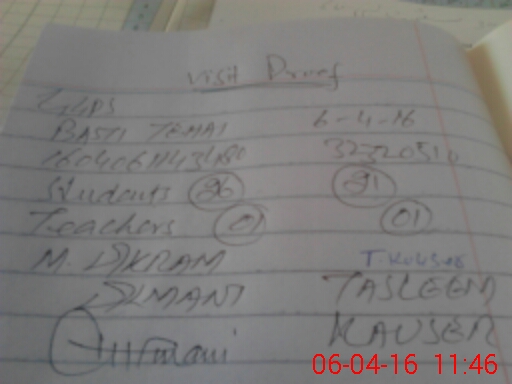 Visit Proof
GGPS
BASTI JEMAI 6-4-16
32320510
Students 26 21
Teachers 01 01
M. IKRAM T. Kousar
USMANI TASLEEM
Usmani KAUSER
06-04-16 11:46